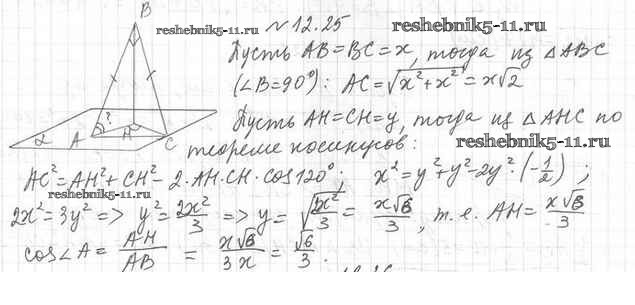 B
A
H
C
α
?
reshebnik5-11.ru
№12.25 reshebnik5-11.ru
Пусть AB=BC=x, тогда из △ABC
(∠B=90°): AC=√(x²+x²)=x√2
Пусть AH=CH=y, тогда из △AHC по
reshebnik5-11.ru
теореме косинусов:
AC²=AH²+CH²-2·AH·CH·cos120°; x²=y²+y²-2y²·(-1/2);
reshebnik5-11.ru
2x²=3y² => y²=2x²/3 => y=√(2x²/3)=x√6/3, т.е. AH=x√6/3
cos∠A=AH/AB=x√6/3x=√6/3.